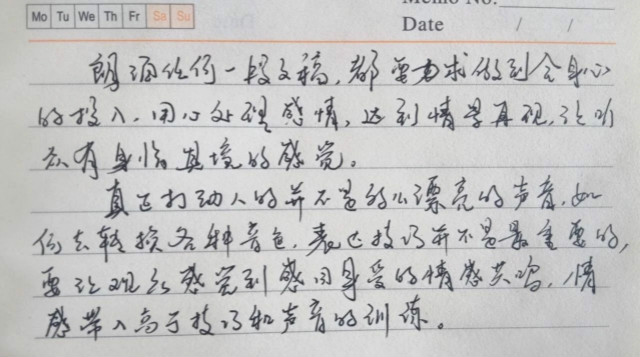 Memo No.
Mo Tu We Th Fr Sa Su
Date / /
朗诵任何一段文稿，都要求做到全身心
的投入，用心处理感情，达到情景再现，让听
众有身临其境的感觉。
真正打动人的并不是那么漂亮的声音，如
何去转换各种音色，表达技巧并不是最重要的，
要让观众感觉到感同身受的情感共鸣，情
感带入高于技巧和声音的训练。